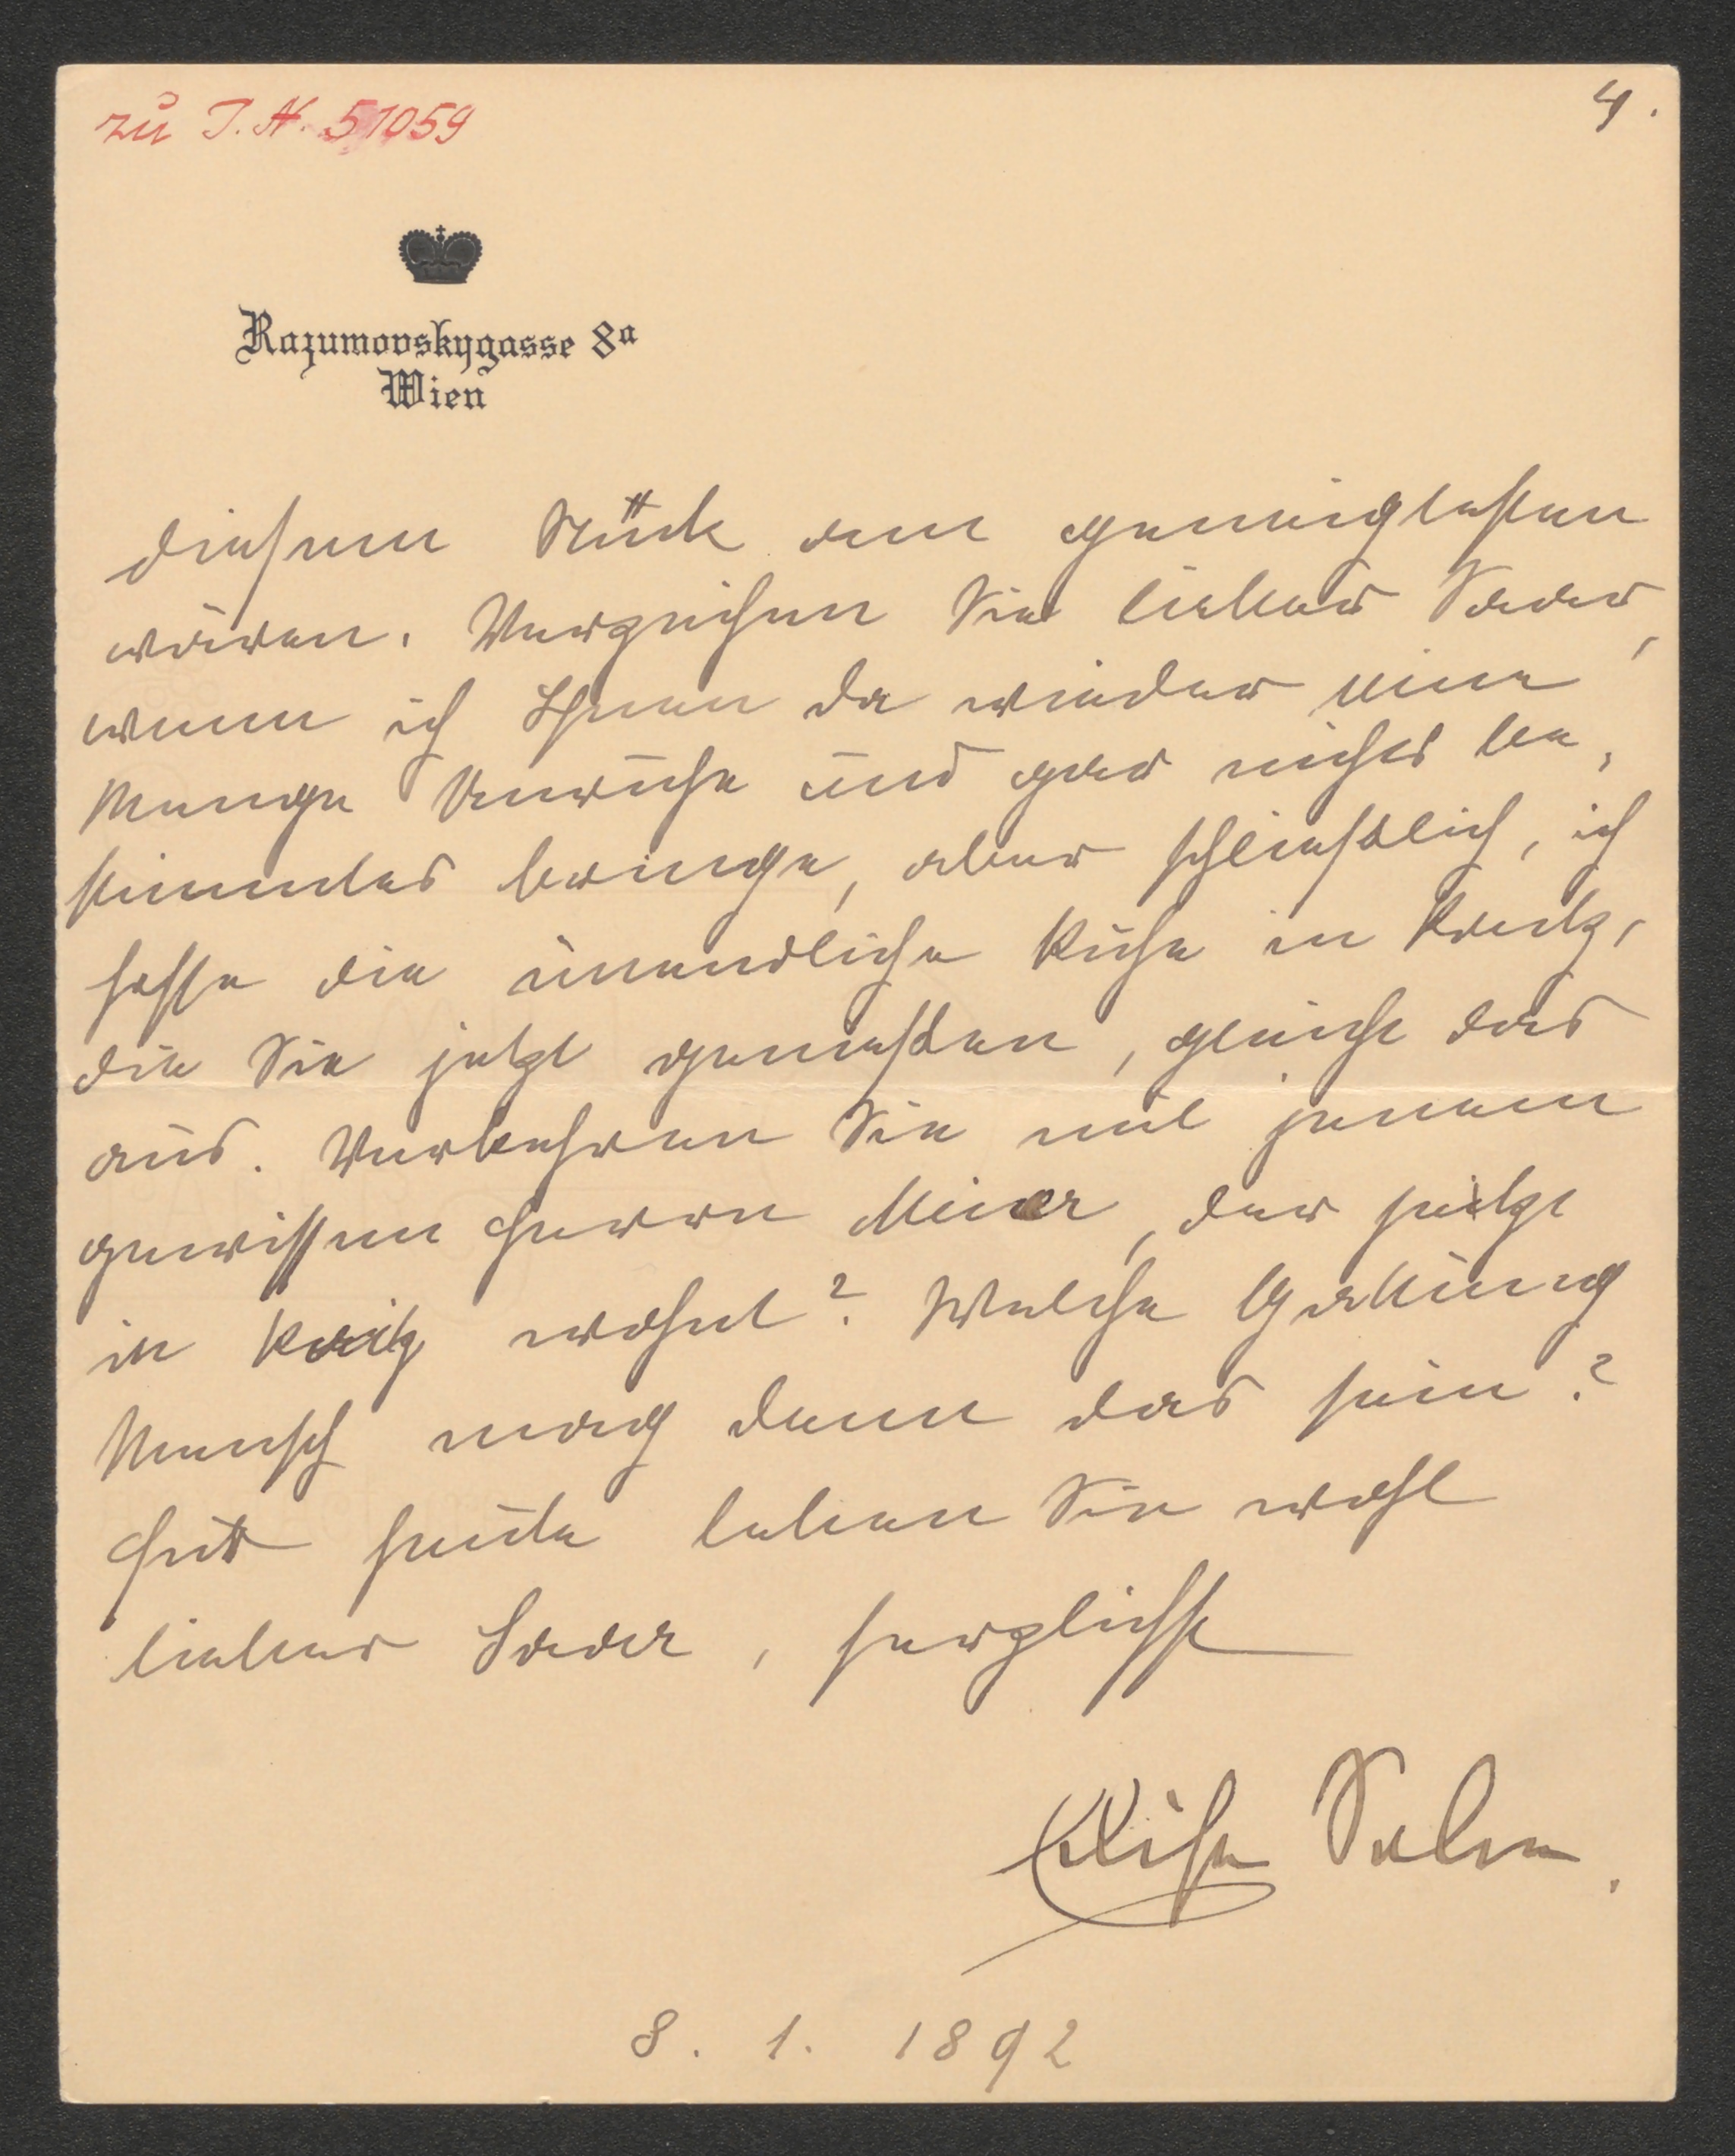 zu I. N. 51059
4.
Razumovskygasse 8a
Wien
diesem Stück am geneigtesten
wären. Verzeihen Sie lieber Saar,
wenn ich Ihnen da wieder eine
Menge Unruhe und gar nichts be,
stimmtes bringe, aber schließlich, ich
hoffe die unendliche Ruhe in Raitz,
die Sie jetzt genießen, gleicht das
aus. Verkehren Sie mit jenem
gewissen Herrn , der jetzt
in Raitz wohnt? Welche Gattung
Mensch mag denn das sein?
Für heute leben Sie wohl
lieber Saar, herzlichst
Elise Salm.
8. 1. 1892